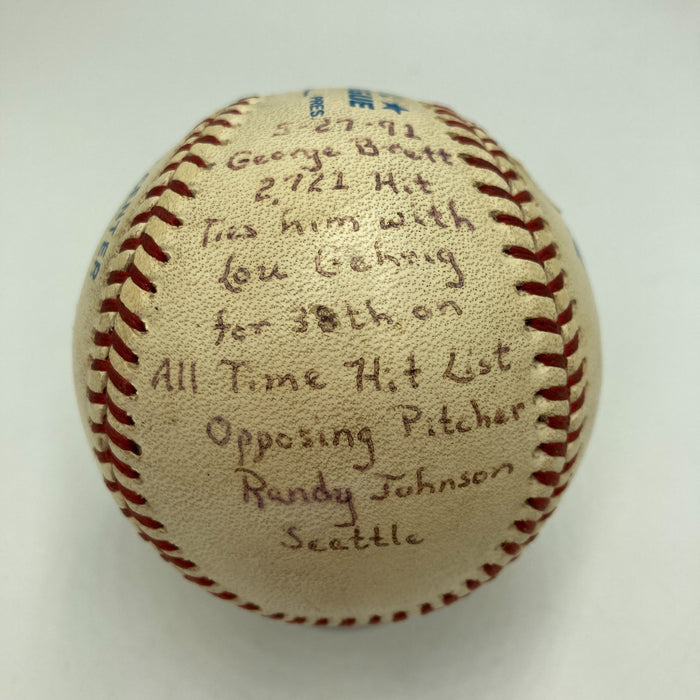 GUE
PRES
5-27-92
George Brett
2,721 Hit
Ties him with
Lou Gehrig
for 38th on
All Time Hit List
Opposing Pitcher
Randy Johnson
Seettle